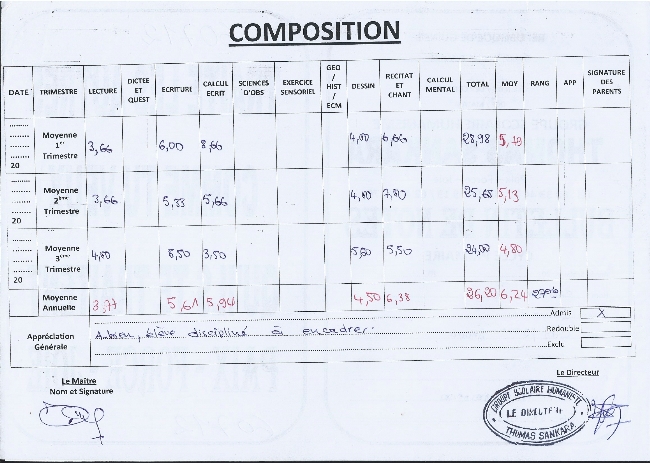 COMPOSITION
DATE TRIMESTRE LECTURE DICTEE ET QUEST ECRITURE CALCUL ECRIT SCIENCES D'OBS EXERCICE SENSORIEL GEO / HIST / ECM DESSIN RECITAT ET CHANT CALCUL MENTAL TOTAL MOY RANG APP SIGNATURE DES PARENTS
20 Moyenne 1er Trimestre 3,66 6,00 8,66 4,00 6,66 28,98 5,79
20 Moyenne 2ème Trimestre 3,66 5,33 5,66 4,00 7,00 25,65 5,13
20 Moyenne 3ème Trimestre 4,00 5,50 3,50 5,50 5,50 24,00 4,80
Moyenne Annuelle 3,77 5,61 5,94 4,50 6,38 26,20 6,24
Admis X
Appréciation Générale élève discipliné à encadrer.
Redouble
Exclu
Le Maître
Nom et Signature
Le Directeur
GROUPE SCOLAIRE HUMANISTE
LE DIRECTEUR
THOMAS SANKARA